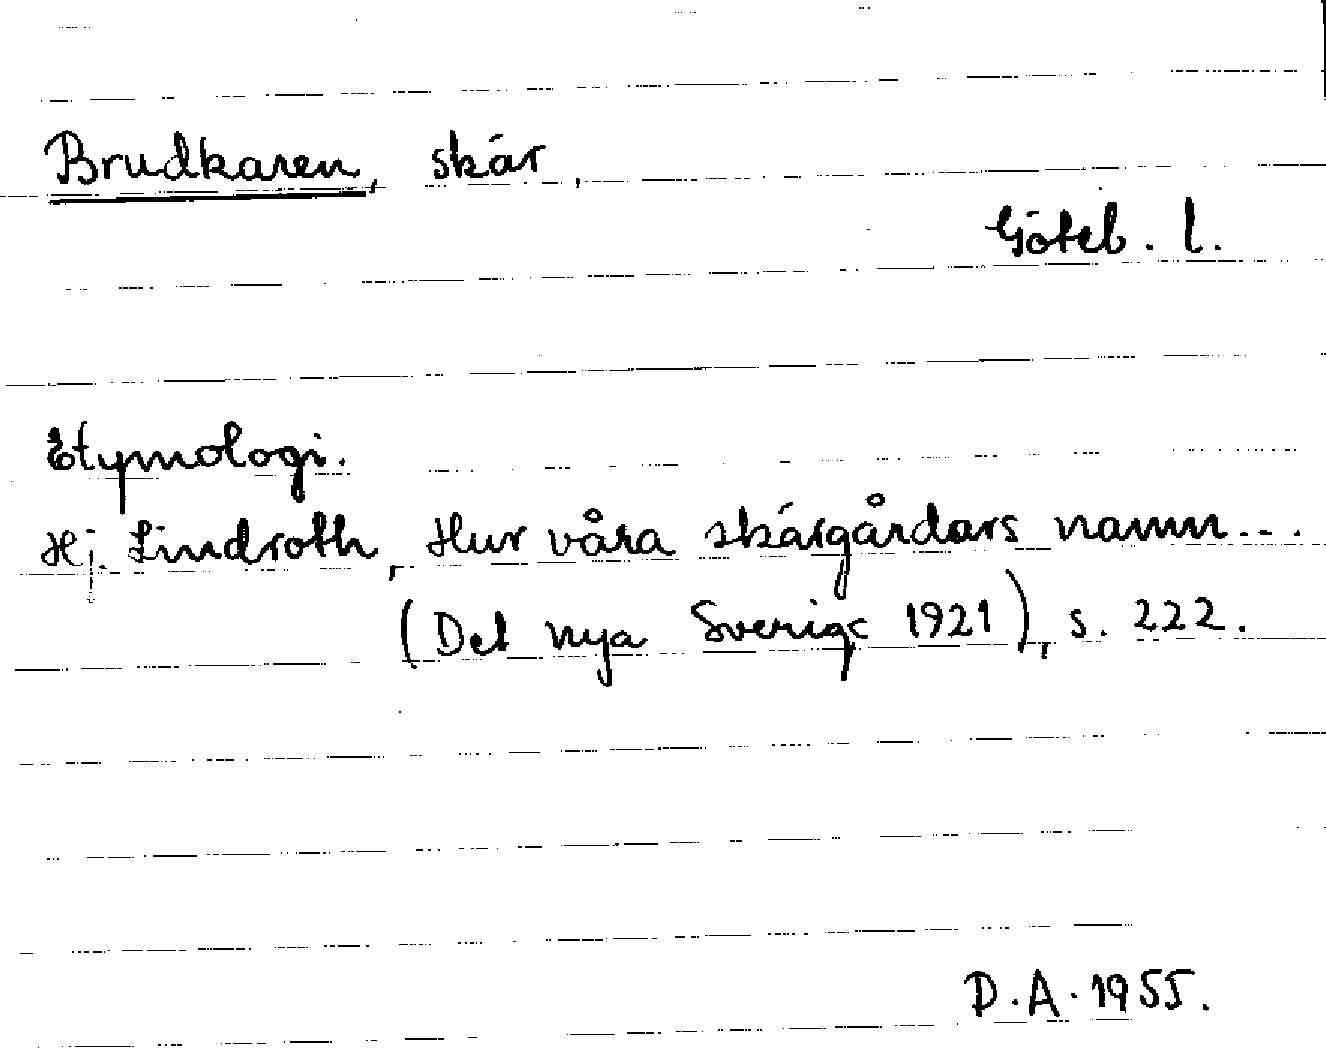 Brudkaren, skär,
Göteb. l.
Etymologi.
Hj. Lindroth, Hur våra skärgårdars namn...
(Det nya Sverige 1921), s. 222.
D.A. 1955.